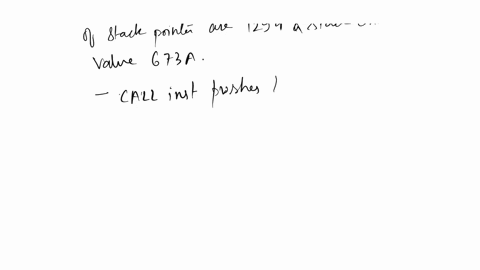 of stack pointer are 1254
value 673A.
- CALL inst pushes )